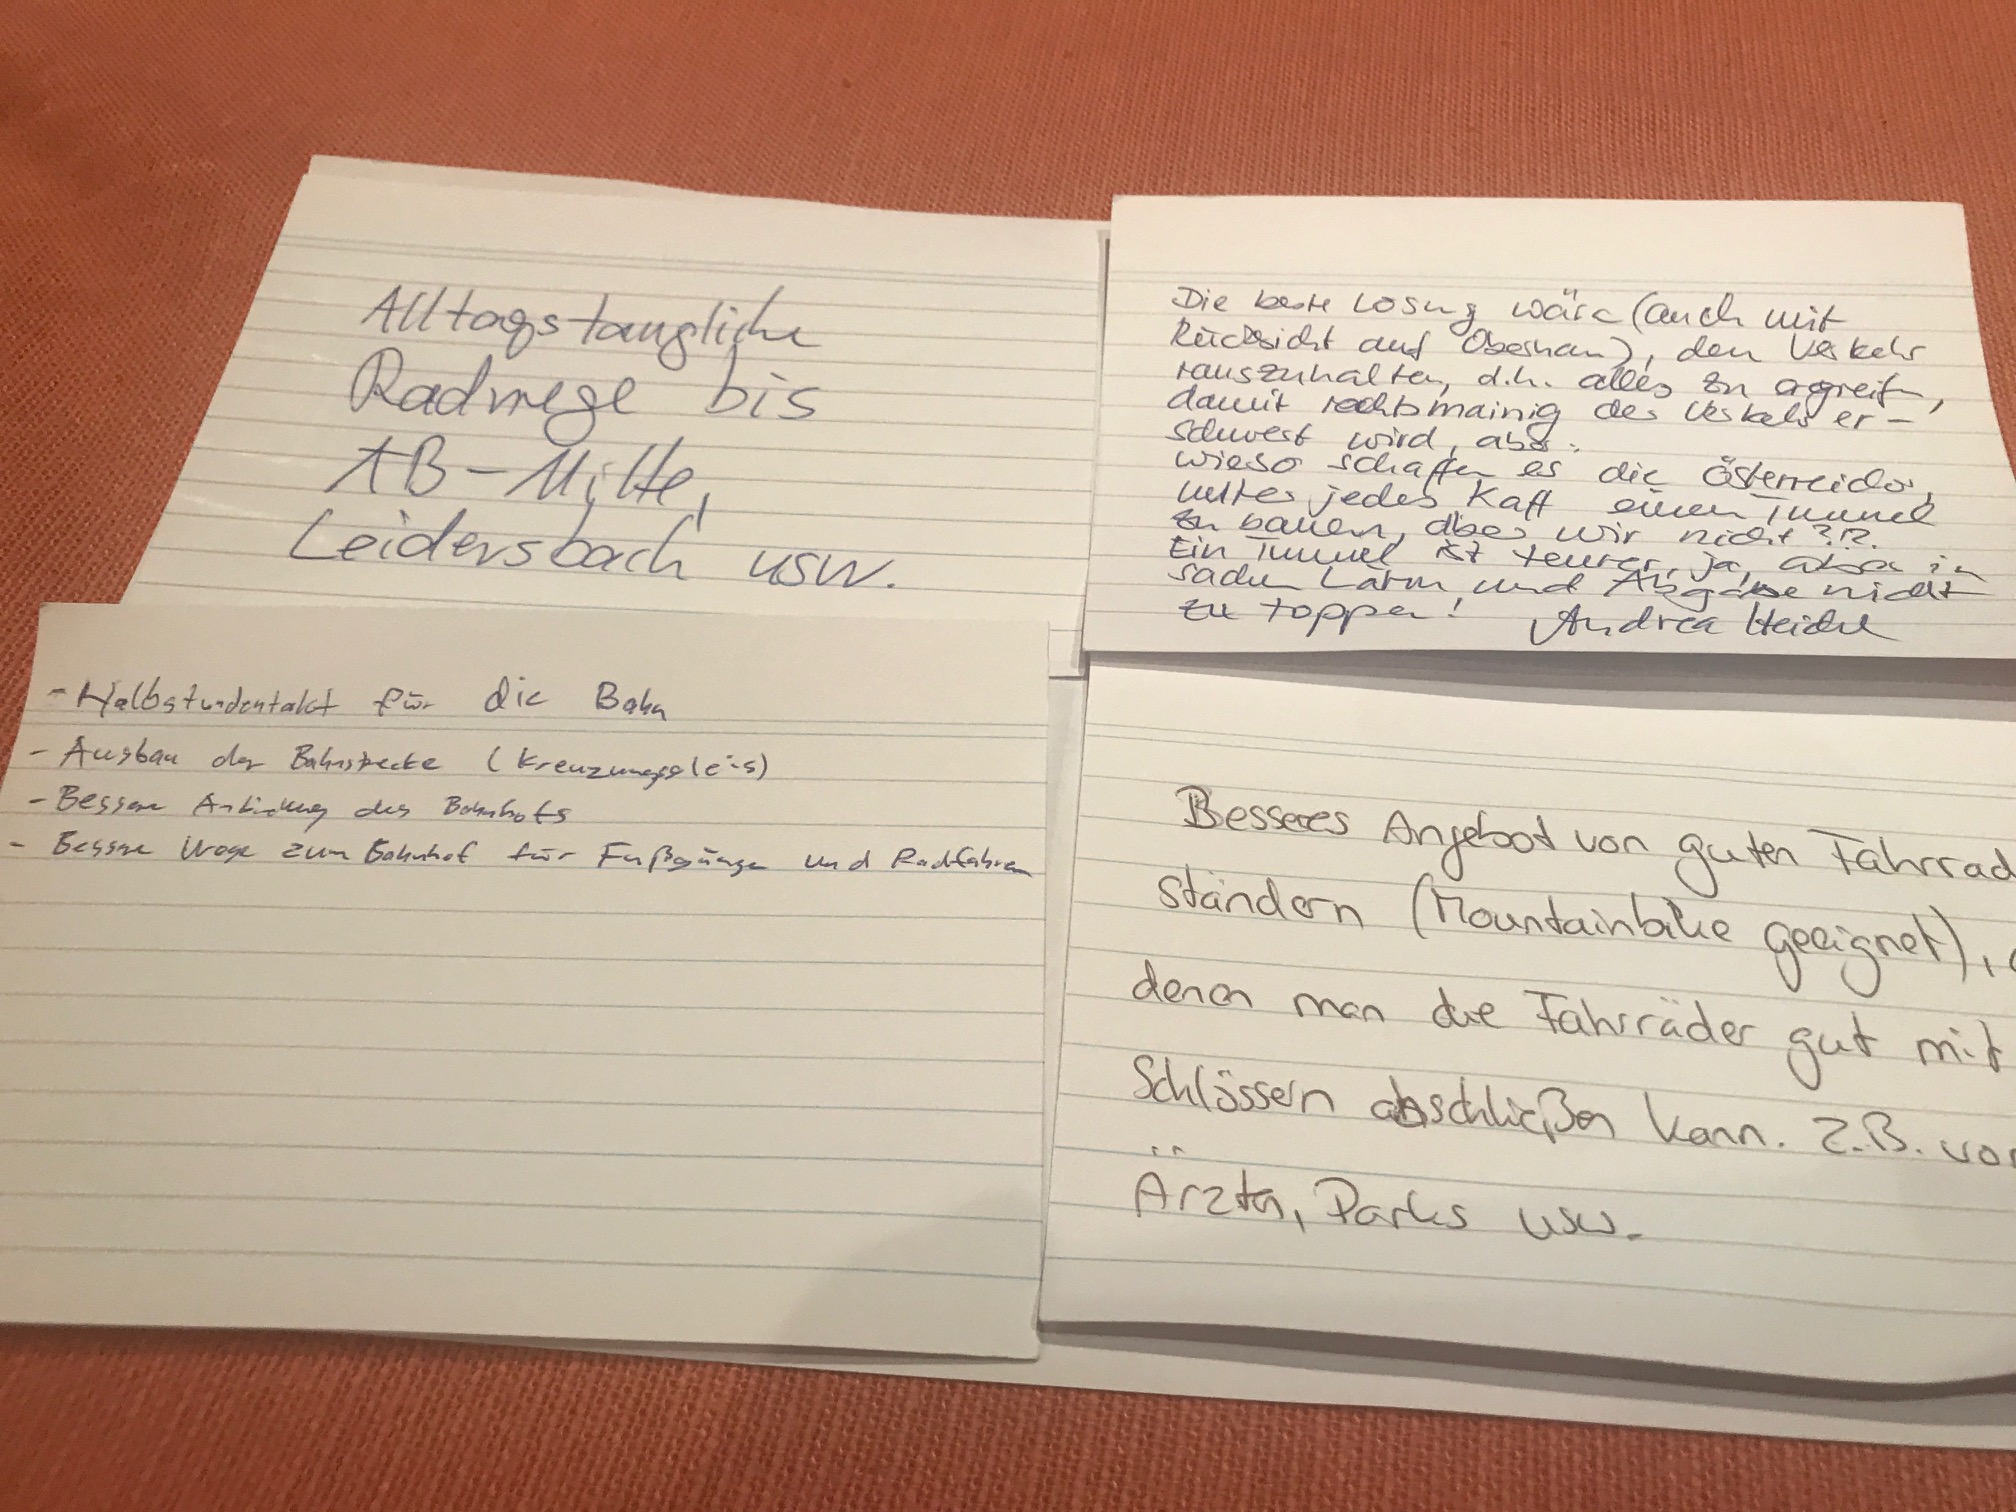 Alltagstaugliche
Radwege bis
AB-Mitte,
Leidersbach usw.
Die beste Lösung wäre (auch mit
Rücksicht auf Obernau), den Verkehr
rauszuhalten, d.h. alles zu ergreifen,
damit rechtsmainig der Verkehr er-
schwert wird, aber:
wieso schaffen es die Österreicher,
unter jedes Kaff einen Tunnel
zu bauen, aber wir nicht?!?
Ein Tunnel ist teurer, ja, aber in
sachen Lärm und Abgase nicht
zu toppen! Andrea
- Halbstundentakt für die Bahn
- Ausbau der Bahnstrecke (Kreuzungsgleis)
- Bessere Anbindung des Bahnhofs
- Bessere Wege zum Bahnhof für Fußgänger und Radfahrer
Besseres Angebot von guten Fahrrad
ständern (Mountainbike geeignet),
denen man die Fahrräder gut mit
Schlössern abschließen kann. Z.B. vor
Ärzten, Parks usw.